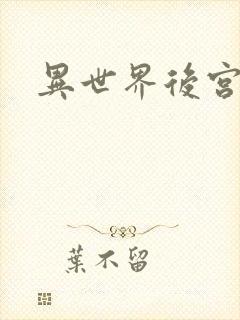 異世界後宮
葉不留